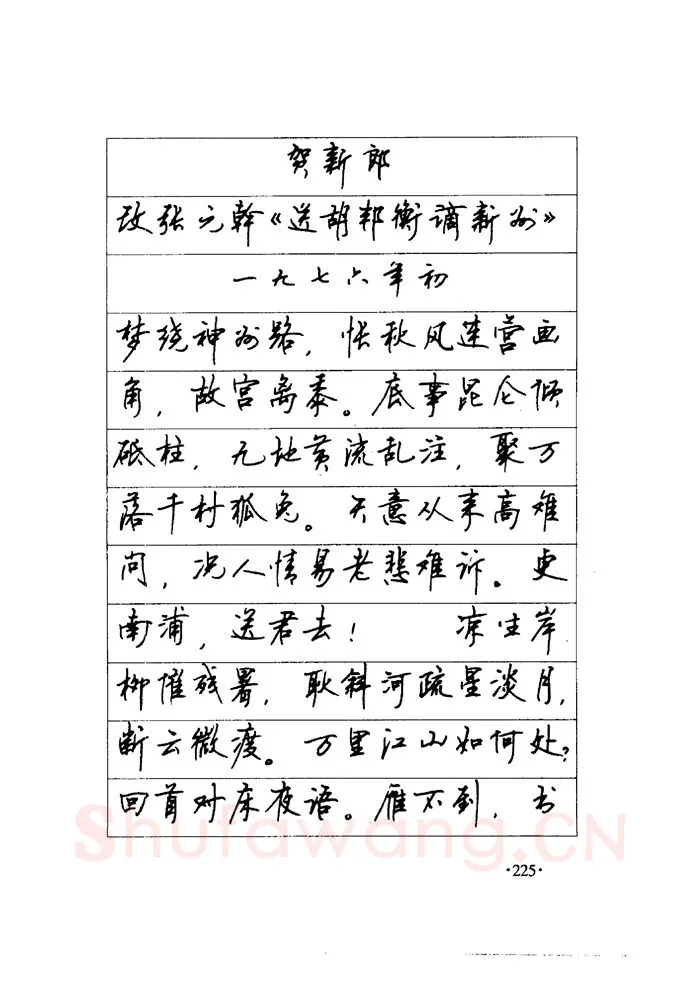 贺新郎
改张元幹《送胡邦衡谪新州》
一九七六年初
梦绕神州路，怅秋风连营画
角，故宫离黍。底事昆仑倾
砥柱，九地黄流乱注，聚万
落千村狐兔。天意从来高难
问，况人情易老悲难诉。更
南浦，送君去！ 凉生岸
柳催残暑，耿斜河疏星淡月，
断云微渡。万里江山知何处？
回首对床夜语。雁不到，书
Shufawang.CN
·225·